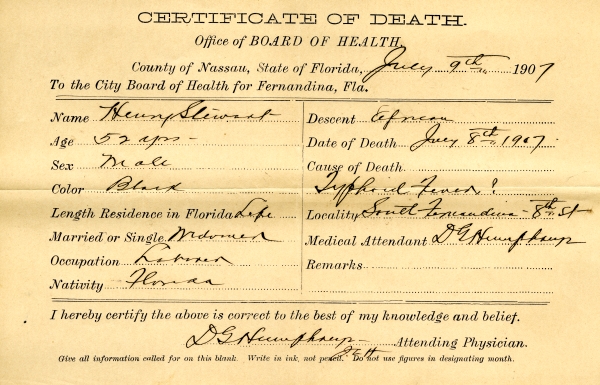 CERTIFICATE OF DEATH.
Office of BOARD OF HEALTH,
County of Nassau, State of Florida, July 9th 1907
To the City Board of Health for Fernandina, Fla.
Name Henry Stewart
Age 52 yrs
Sex Male
Color Black
Length Residence in Florida Life
Married or Single Widowed
Occupation Laborer
Nativity Florida
Descent African
Date of Death July 8th 1907
Cause of Death
Typhoid Fever?
Locality South Fernandina - 8th St
Medical Attendant DG Humphreys
Remarks
I hereby certify the above is correct to the best of my knowledge and belief.
DG Humphreys Attending Physician.
Give all information called for on this blank. Write in ink, not pencil. Do not use figures in designating month.